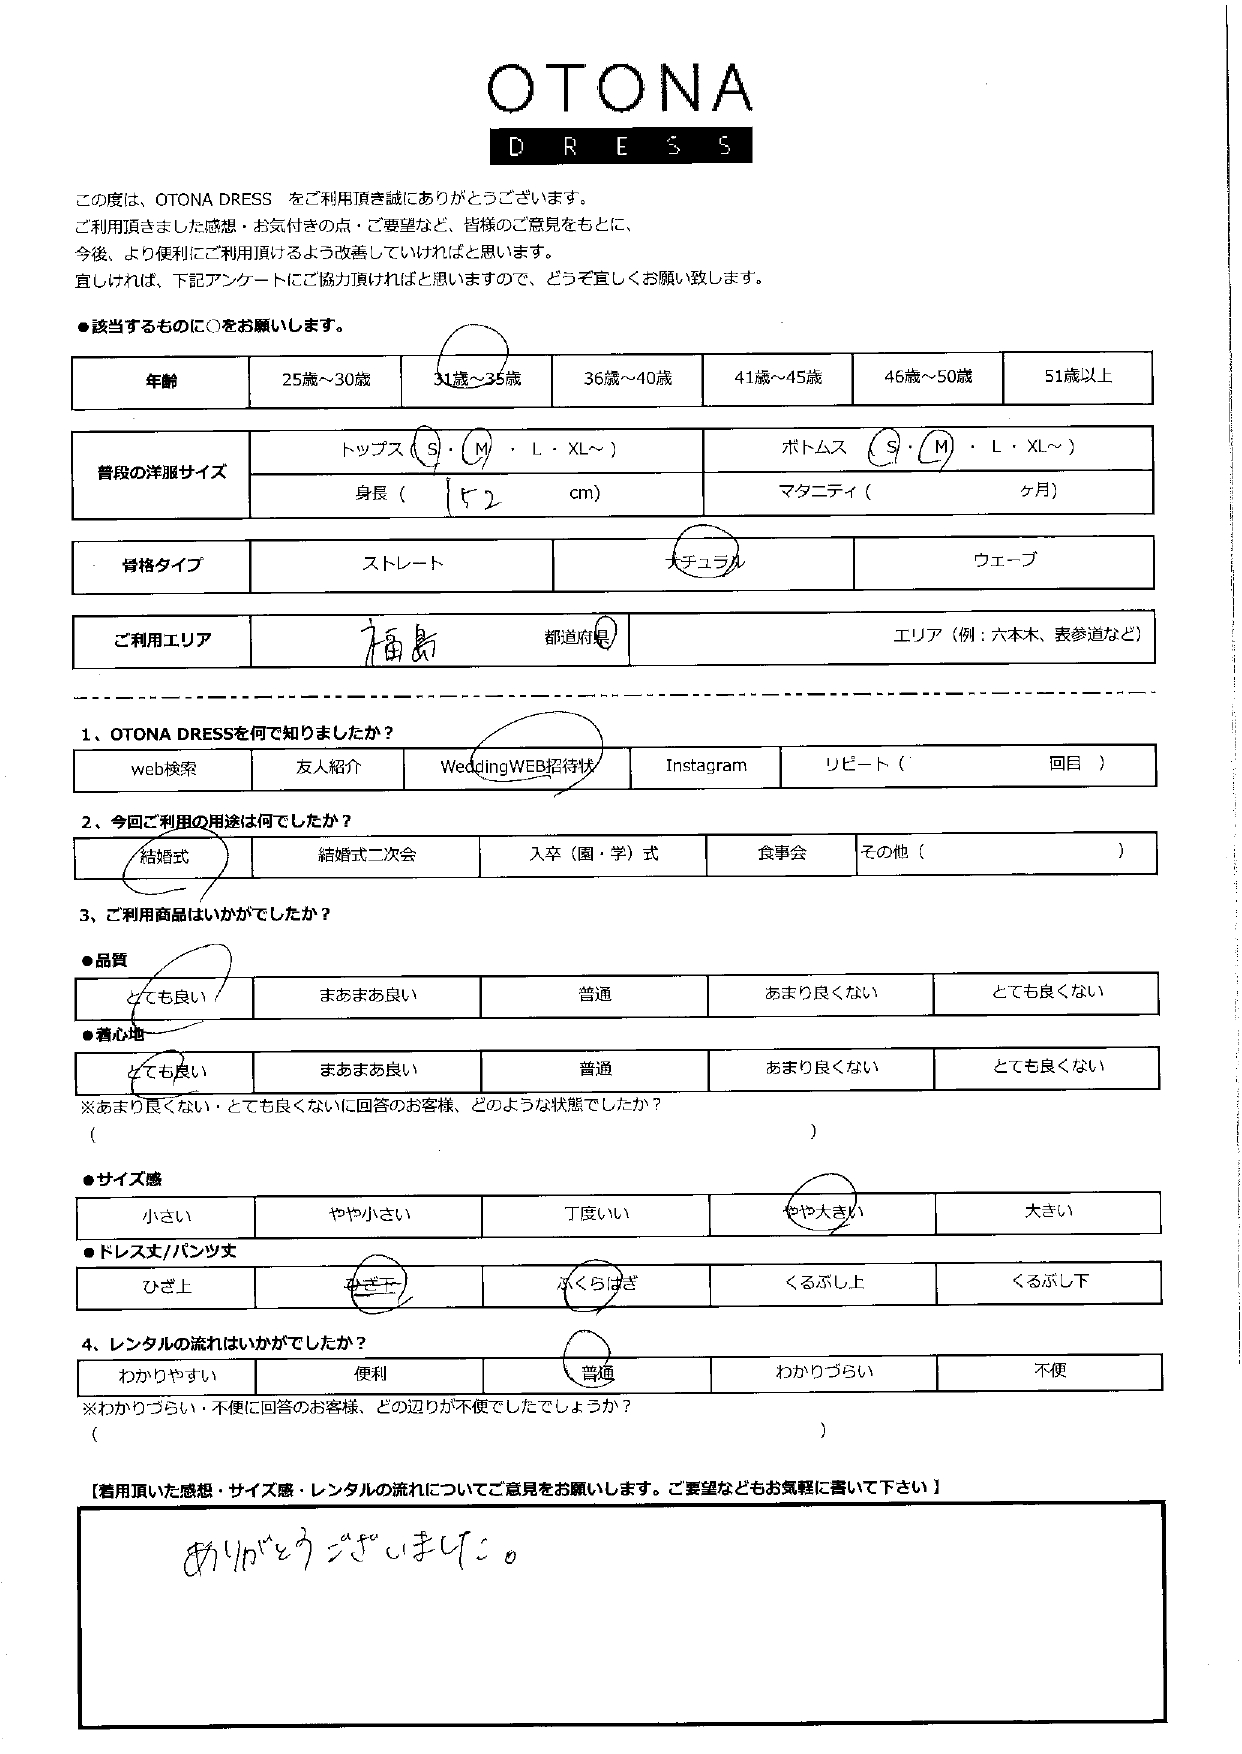 OTONA
DRESS
この度は、OTONA DRESS をご利用頂き誠にありがとうございます。
ご利用頂きました感想・お気付きの点・ご要望など、皆様のご意見をもとに、
今後、より便利にご利用頂けるよう改善していければと思います。
宜しければ、下記アンケートにご協力頂ければと思いますので、どうぞ宜しくお願い致します。
●該当するものに○をお願いします。
年齢 25歳～30歳 31歳～35歳 36歳～40歳 41歳～45歳 46歳～50歳 51歳以上
普段の洋服サイズ トップス（S・M ・ L ・ XL～ ） ボトムス （S・M ・ L ・ XL～ ）
身長（ 152 cm） マタニティ（ ヶ月）
骨格タイプ ストレート ナチュラル ウェーブ
ご利用エリア 福島 都道府県 エリア（例：六本木、表参道など）
1、OTONA DRESSを何で知りましたか？
web検索 友人紹介 WeddingWEB招待状 Instagram リピート（ 回目 ）
2、今回ご利用の用途は何でしたか？
結婚式 結婚式二次会 入卒（園・学）式 食事会 その他（ ）
3、ご利用商品はいかがでしたか？
●品質
とても良い まあまあ良い 普通 あまり良くない とても良くない
●着心地
とても良い まあまあ良い 普通 あまり良くない とても良くない
※あまり良くない・とても良くないに回答のお客様、どのような状態でしたか？
（ ）
●サイズ感
小さい やや小さい 丁度いい やや大きい 大きい
●ドレス丈/パンツ丈
ひざ上 ひざ下 ふくらはぎ くるぶし上 くるぶし下
4、レンタルの流れはいかがでしたか？
わかりやすい 便利 普通 わかりづらい 不便
※わかりづらい・不便に回答のお客様、どの辺りが不便でしたでしょうか？
（ ）
【着用頂いた感想・サイズ感・レンタルの流れについてご意見をお願いします。ご要望などもお気軽に書いて下さい 】
ありがとうございました。